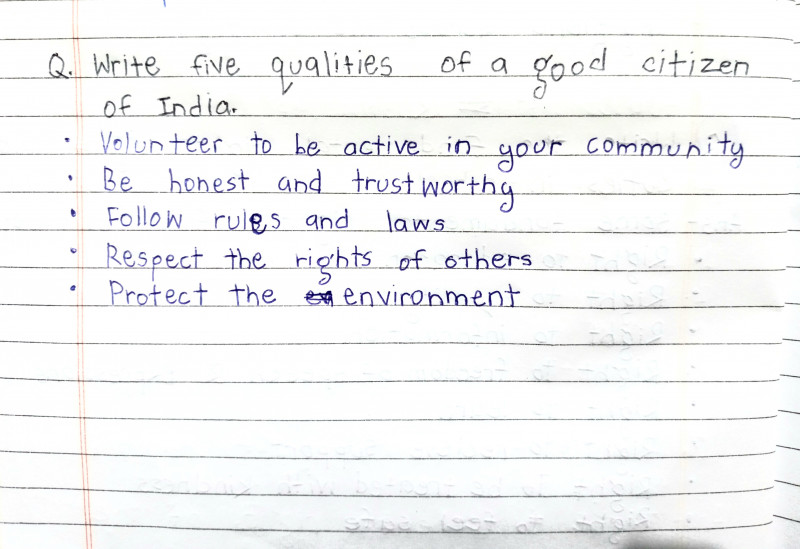 Q. Write five qualities of a good citizen
of India.
• Volunteer to be active in your community
• Be honest and trustworthy
• Follow rules and laws
• Respect the rights of others
• Protect the environment